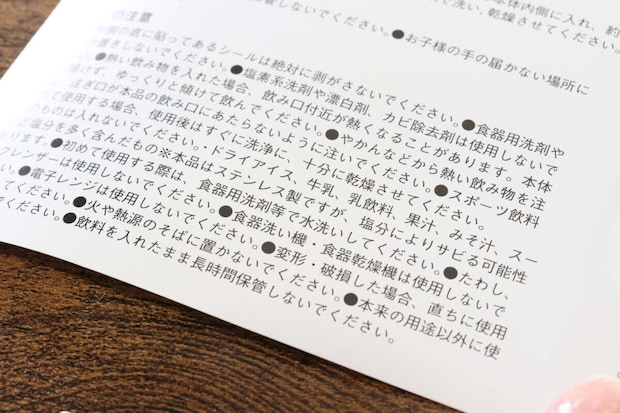 本体内側に入れ、約
で洗い、乾燥させてください。
管しないでください。●お子様の手の届かない場所に
の注意
の底に貼ってあるシールは絶対に剥がさないでください。●食器用洗剤や
きしないでください。●塩素系洗剤や漂白剤、カビ除去剤は使用しないで
●熱い飲み物を入れた場合、飲み口付近が熱くなることがあります。本体
けず、ゆっくりと傾けて飲んでください。●やかんなどから熱い飲み物を注
注ぎ口が本品の飲み口にあたらないように注いでください。●スポーツ飲料
て使用する場合、使用後はすぐに洗浄し、十分に乾燥させてください。
ものは入れないでください。・ドライアイス、牛乳、乳飲料、果汁、みそ汁、スー
ど塩分を多く含んだもの※本品はステンレス製ですが、塩分によりサビる可能性
ります。●初めて使用する際は、食器用洗剤等で水洗いしてください。●たわし、
クレンザーは使用しないでください。●食器洗い機・食器乾燥機は使用しないで
い。●電子レンジは使用しないでください。●変形・破損した場合、直ちに使用
てください。●火や熱源のそばに置かないでください。●本来の用途以外に使
ください。●飲料を入れたまま長時間保管しないでください。